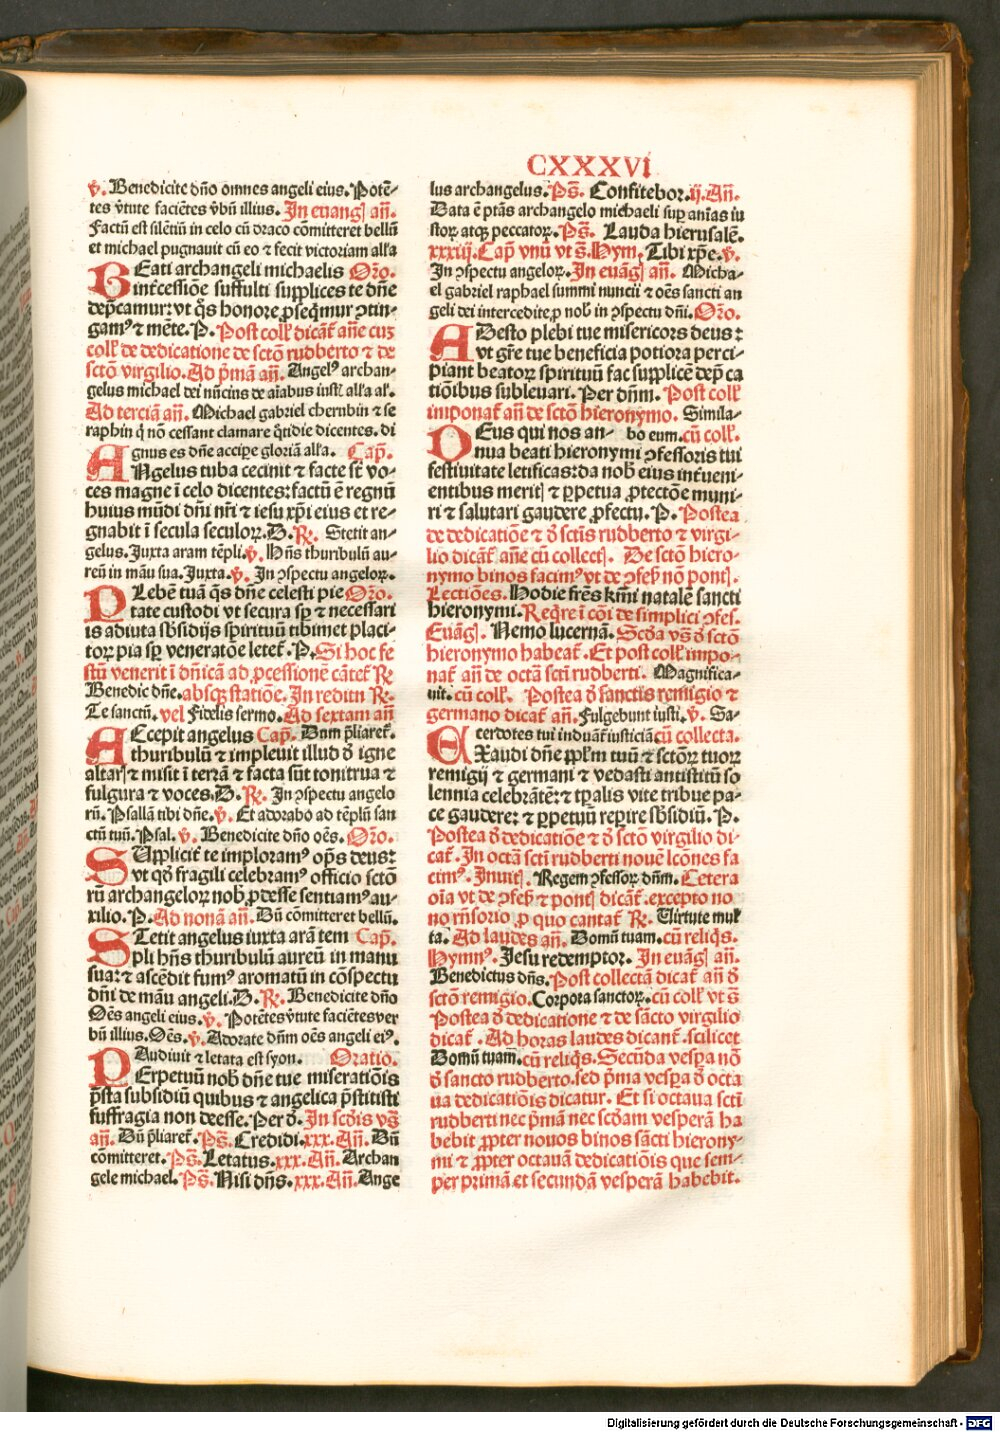 CXXXVI
v̄. Benedicite dño omnes angeli eius. Potē-
tes v̄tute faciētes v̄bū illius. In euangꝭ añ.
Factū est silētiū in celo cū draco cōmitteret bellū
et michael pugnauit cū eo & fecit victoriam all'a
BEati archangeli michaelis Oro.
int̄cessiōe suffulti supplices te dñe
dep̄camur: vt q̄s honore ꝓseqͥmur ꝯtin-
gamꝰ & mēte. P. Post coll' dicāt̄ añe cuz
coll' de dedicatione de sctō rudberto & de
sctō virgilio. Ad p̄mā añ. Angelꝰ archan-
gelus michael dei nūcins de aīabus iust' all'a al'.
Ad terciā añ. Michael gabriel cherubin & se
raphin q̄ nō cessant clamare q̄tidie dicentes. di
gnus es dñe accipe gloriā all'a. Cap̄.
ANgelus tuba cecinit & facte sūt vo-
ces magne ī celo dicentes: factū ē regnū
huius mūdi dñi nr̄i & iesu xp̄i eius et re-
gnabit ī secula seculoꝝ. D. R̄. Stetit an-
gelus. Juxta aram tēpli. v̄. Hñs thuribulū au-
reū in māu sua. Juxta. v̄. In ꝯspectu angeloꝝ.
PLebē tuā q̄s dñe celesti pie Oro.
tate custodi vt secura sp̄ & necessari
is adiuta sb̄sidijs spirituū tibimet placi-
toꝝ pia sp̄ veneratōe letet̄. P. Si hoc fe
stū venerit ī dñicā ad ꝓcessionē cātet̄ R̄
Benedic dñe. absqꝫ statiōe. In reditu R̄.
Te sanctū. vel Fidelis sermo. Ad sextam añ
AEcepit angelus Cap̄. Dum p̄liaret̄.
thuribulū & impleuit illud d̄ igne
altarꝭ & misit ī terrā & facta sūt tonitrua &
fulgura & voces. D. R̄. In ꝯspectu angelo
rū. Psallā tibi dñe. v̄. Et adorabo ad tēplū san
ctū tuū. Psal. v̄. Benedicite dño oēs. Oro.
SUpplicit̄ te imploramꝰ op̄s deus:
vt qd̄ fragili celebramꝰ officio sctō
rū archangeloꝝ nob̄ ꝓdesse sentiamꝰ au-
xilio. P. Ad nonā añ. Dū cōmitteret bellū.
STetit angelus iuxta arā tem Cap̄.
pli hñs thuribulū aureū in manu
sua: & ascēdit fumꝰ aromatū in cōspectu
dñi de māu angeli. D. R̄. Benedicite dño
Oēs angeli eius. v̄. Potētes v̄tute faciētes ver
bū illius. Oēs. v̄. Adorate dñm oēs angeli eiꝰ.
Audiuit & letata est syon. Oratio.
PErpetuū nob̄ dñe tue miseratiōis
p̄sta subsidiū quibus & angelica p̄stitisti
suffragia non deesse. Per d̄. In scd̄is vs̄
añ. Dū p̄liaret̄. Ps̄. Credidi. xxx. Añ. Dū
cōmitteret. Ps̄. Letatus. xxx. Añ. Archan
gele michael. Ps̄. Nisi dñs. xxx. Añ. Ange
lus archangelus. Ps̄. Confitebor. ij. Añ.
Data ē ptās archangelo michaeli sup̄ anīas iu
stoꝝ atqꝫ peccatoꝝ. Ps̄. Lauda hierusalē.
xxxiij. Cap̄ vnū vt s̄. Hym. Tibi xp̄e. v̄.
In ꝯspectu angeloꝝ. In euāgꝭ añ. Micha-
el gabriel raphael summi nuncii & oēs sancti an
geli dei intercedite ꝓ nob̄ in ꝯspectu dñi. Oro.
ADesto plebi tue misericors deus:
vt gr̄e tue beneficia potiora perci-
piant beatoꝝ spirituū fac supplicē dep̄ ca
tiōibus subleuari. Per dñm. Post coll'
imponat̄ añ de sctō hieronymo. Simila-
bo eum. cū coll'.
DEus qui nos an-
nua beati hieronymi ꝯfessoris tui
festiuitate letificas: da nob̄ eius int̄ueni-
entibus meritꝭ & ꝑpetua ꝓtectōe muni-
ri & salutari gaudere ꝓfectu. P. Postea
de dedicatiōe & d̄ sctis rudberto & virgi-
lio dicāt̄ añe cū collectꝭ. De sctō hiero-
nymo binos facimꝰ vt de ꝯfeb̄ nō pontꝭ.
Lectiōes. Hodie fr̄es km̄i natalē sancti
hieronymi. Reqͥre ī cōi de simplici ꝯfes.
Euāgꝭ. Nemo lucernā. Scd̄a vs̄ d̄ sctō
hieronymo habeat̄. Et post coll' impo-
nat̄ añ de octā sctī rudberti. Magnifica-
uit. cū coll'. Postea d̄ sanctis remigio &
germano dicat̄ añ. Fulgebunt iusti. v̄. Sa-
cerdotes tui induāt̄ iusticiā cū collecta.
EXaudi dñe pp̄l'm tuū & sctōꝝ tuoꝝ
remigij & germani & vedasti antistitū so
lennia celebrātē: & tp̄alis vite tribue pa-
ce gaudere: & ꝑpetuū reperire sb̄sidiū. P.
Postea d̄ dedicatiōe & d̄ sctō virgilio di-
cat̄. In octā sctī rudberti nouē lcōnes fa
cimꝰ. Inuitꝭ. Regem ꝯfessoꝝ dñm. Cetera
oīa vt de ꝯfeb̄ & pontꝭ dicāt̄. excepto no
no rñsorio ꝓ quo cantat̄ R̄. Uirtute mul
ta. Ad laudes añ. Domū tuam. cū reliq̄s.
Hymnꝰ. Jesu redemptor. In euāgꝭ añ.
Benedictus dñs. Post collectā dicat̄ añ d̄
sctō remigio. Corpora sanctoꝝ. cū coll' vt s̄
Postea d̄ dedicatione & de sācto virgilio
dicat̄. Ad horas laudes dicant̄. scilicet
Domū tuam. cū reliq̄s. Secūda vesꝑa nō
d̄ sancto rudberto. sed p̄ma vesꝑa d̄ octa
ua dedicatiōis dicatur. Et si octaua sctī
rudberti nec p̄mā nec scd̄am vesperā ha
bebit ꝓpter nouos binos sācti hierony-
mi & ꝓpter octauā dedicatiōis que sem-
per primā et secundā vesperā habebit.
Digitalisierung gefördert durch die Deutsche Forschungsgemeinschaft - DFG